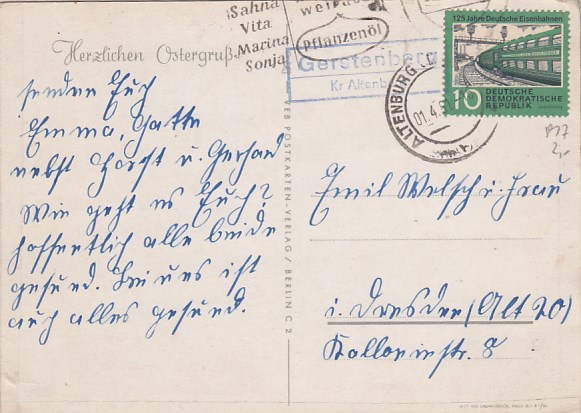 Sahna
Vita
Marina
Sonja
Pflanzenöl
Herzlichen Ostergruß
Gerstenberg
Kr Altenb
ALTENBURG
01.4.6
125 Jahre Deutsche Eisenbahnen
10 DEUTSCHE
DEMOKRATISCHE
REPUBLIK
2,-
senden Euch
Emma, Gatte
nebst Horst u. Gerhard
Wie geht es Euch?
hoffentlich alle beide
gesund. Bei uns ist
auch alles gesund.
VEB POSTKARTEN-VERLAG / BERLIN C 2
Emil Welsch u. Frau
i. Dresden (Alt 20)